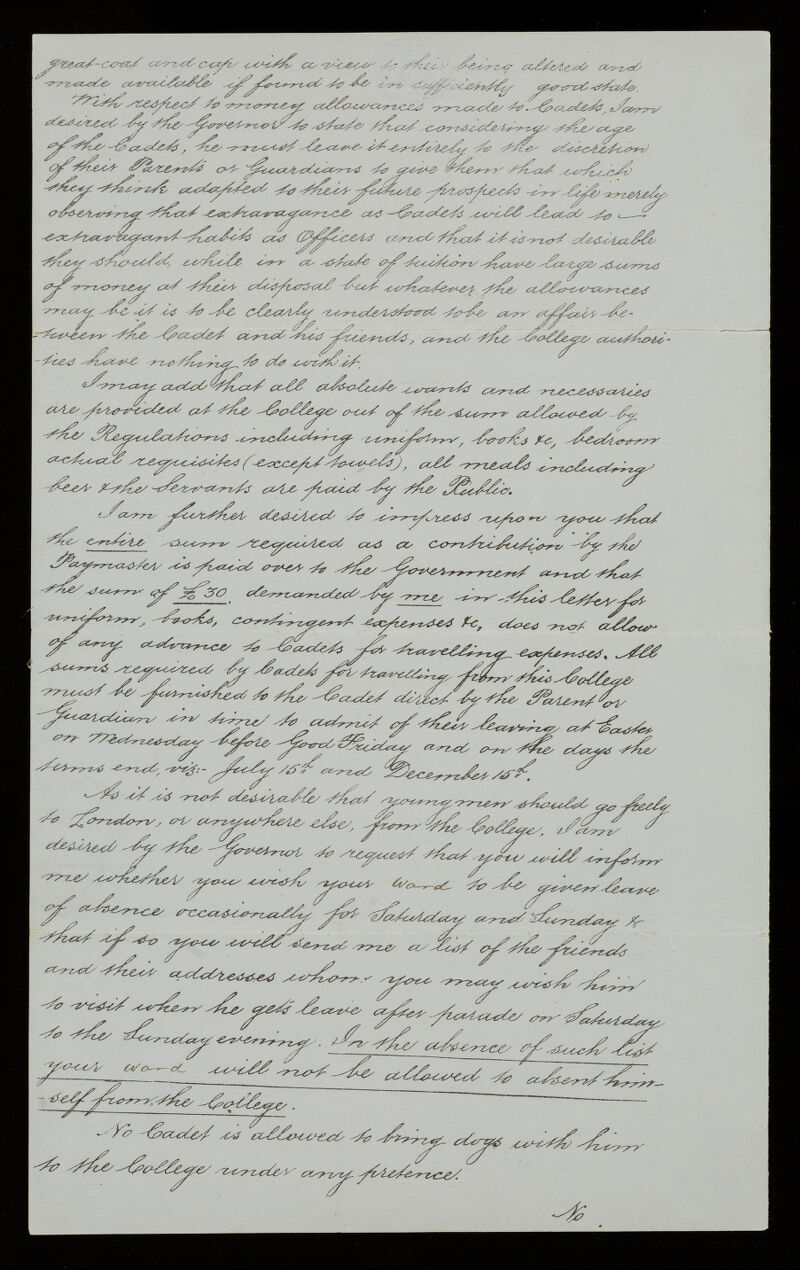 great-coat and cap with a view to their being altered and
made available if found to be in sufficiently good state.
With respect to money allowances made to Cadets, I am
desired by the Governor to state that considering the age
of the Cadets, he must leave it entirely to the discretion
of their Parents or Guardians to give them that which
they think adapted to their future prospects in life merely
observing that extravagance as Cadets will lead to —
extravagant habits as Officers and that it is not desirable
they should, while in a state of tuition have large sums
of money at their disposal but whatever the allowances
may be it is to be clearly understood to be an affair be-
-tween the Cadet and his friends, and the College authori-
-ties have nothing to do with it.
I may add that all absolute wants and necessaries
are provided at the College out of the sum allowed by
the Regulations including uniform, books &c, bedroom
actual requisites (except towels), all meals including
beer & the Servants are paid by the Public.
I am further desired to impress upon you that
the entire sum required as a contribution by the
Paymaster is paid over to the Government and that
the sum of £30 demanded by me in this letter for
uniform, books, contingent expenses &c, does not allow
of any advance to Cadets for travelling expenses. All
sums required by Cadets for travelling from this College
must be furnished to the Cadet direct by the Parent or
Guardian in time to admit of their leaving at Easter
on Wednesday before Good Friday and on the days the
terms end, viz:- July 15th and December 15th.
As it is not desirable that young men should go freely
to London, or anywhere else, from the College, I am
desired by the Governor to request that you will inform
me whether you wish your Ward to be given leave
of absence occasionally for Saturday and Sunday &
that if so you will send me a list of the friends
and their addresses whom you may wish him
to visit when he gets leave after parade on Saturday
to the Sunday evening. In the absence of such list
your Ward will not be allowed to absent him-
-self from the College.
No Cadet is allowed to bring dogs with him
to the College under any pretence.
No